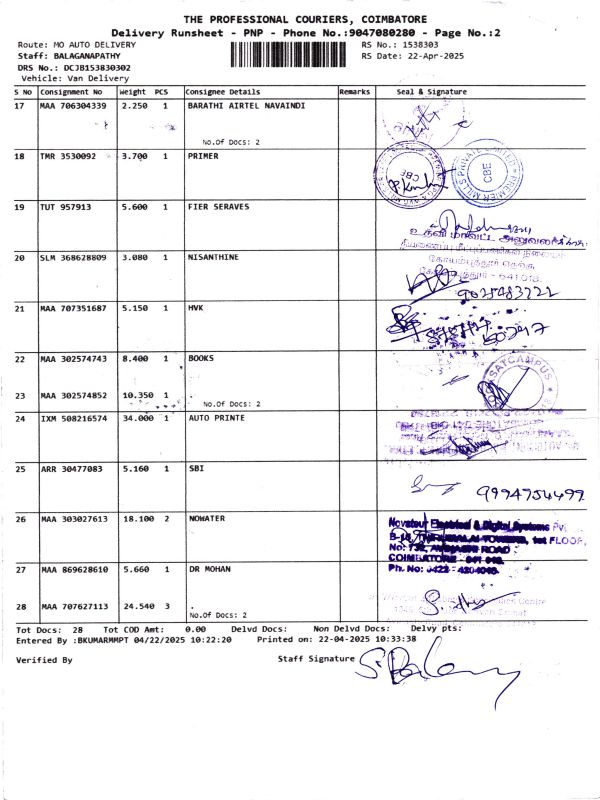 THE PROFESSIONAL COURIERS, COIMBATORE
Delivery Runsheet - PNP - Phone No.:9047080280 - Page No.:2
Route: MO AUTO DELIVERY RS No.: 1538303
Staff: BALAGANAPATHY RS Date: 22-Apr-2025
DRS No.: DCJB153830302
Vehicle: Van Delivery
S No Consignment No Weight PCS Consignee Details Remarks Seal & Signature
17 MAA 706304339 2.250 1 BARATHI AIRTEL NAVAINDI
No.Of Docs: 2
18 TMR 3530092 3.700 1 PRIMER
CBE
PREMIER MILLS PRIVATE LIMITED
CBE
19 TUT 957913 5.600 1 FIER SERAVES
உதவி மாவட்ட அலுவலர்
கோயம்புத்தூர் தெற்கு
- 641018.
20 SLM 368628809 3.080 1 NISANTHINE
9025483722
21 MAA 707351687 5.150 1 HVK
22 MAA 302574743 8.400 1 BOOKS
SATCAMPUS
23 MAA 302574852 10.350 1
No.Of Docs: 2
24 IXM 508216574 34.000 1 AUTO PRINTE
25 ARR 30477083 5.160 1 SBI
9994754499
26 MAA 303027613 18.100 2 NOWATER
Novateur Electrical & Digital Systems Pvt.
B-10, THIRUMALAI TOWERS, 1st FLOOR,
No: 732, AVINASHI ROAD
COIMBATORE - 641 018.
Ph. No: 0422 - 4204048
27 MAA 869628610 5.660 1 DR MOHAN
28 MAA 707627113 24.540 3
No.Of Docs: 2
Tot Docs: 28 Tot COD Amt: 0.00 Delvd Docs: Non Delvd Docs: Delvy pts:
Entered By :BKUMARMMPT 04/22/2025 10:22:20 Printed on: 22-04-2025 10:33:38
Verified By Staff Signature